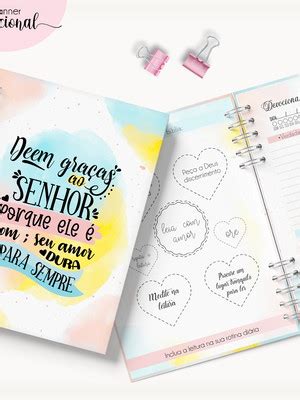 anner
cional
Deem graças
ao
SENHOR
porque ele é
om ; seu amor
DURA
PARA SEMPRE
Peça a Deus
discernimento
leia com
amor
Procure um
lugar tranquilo
para ler
Medite na
leitura
Inclua a leitura na sua rotina diária
Devocional